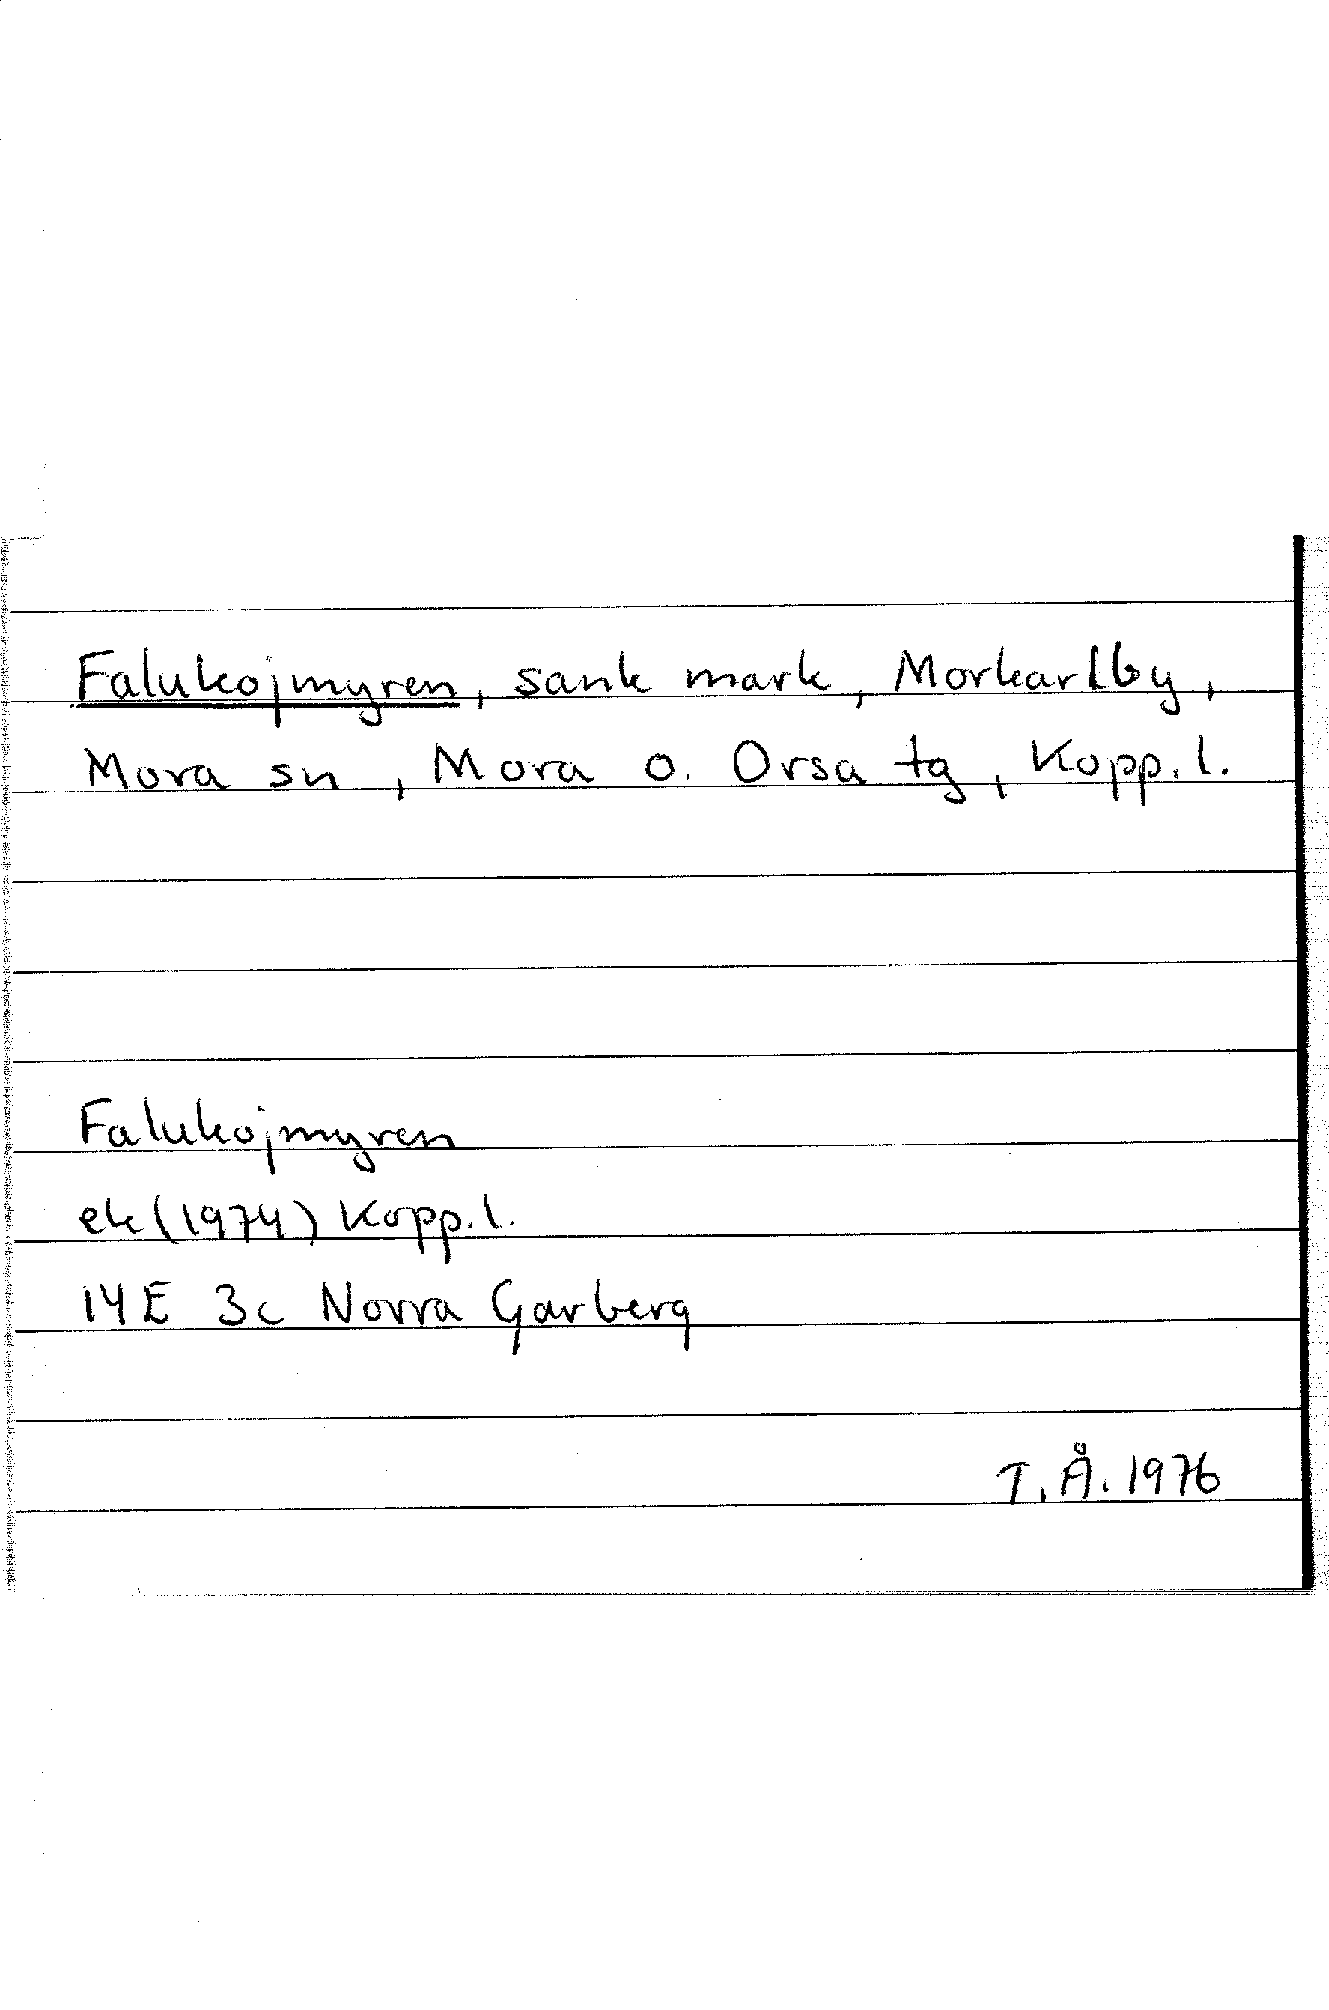 Falukojmyren, sank mark, Morkarlby,
Mora sn, Mora o. Orsa tg, Kopp. l.
Falukojmyren
ek (1974) Kopp. l.
14E 3c Norra Garberg
T. Å. 1976